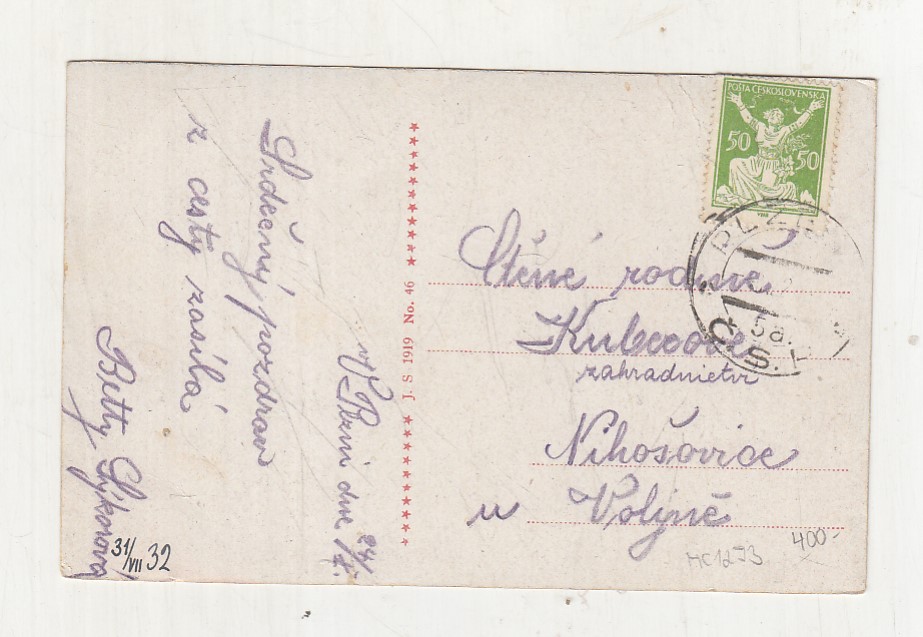 Srdečný pozdrav
z cesty zasílá
Betty Sýkorová
v Plzni dne 24/
31/VII 32
J. S 1919 No. 46
POŠTA ČESKOSLOVENSKA
50 50
PLZ
5a.
Č.S.
Ctěné rodině
zahradnictví
Nihošovice
u Volyně
MC1273
400-